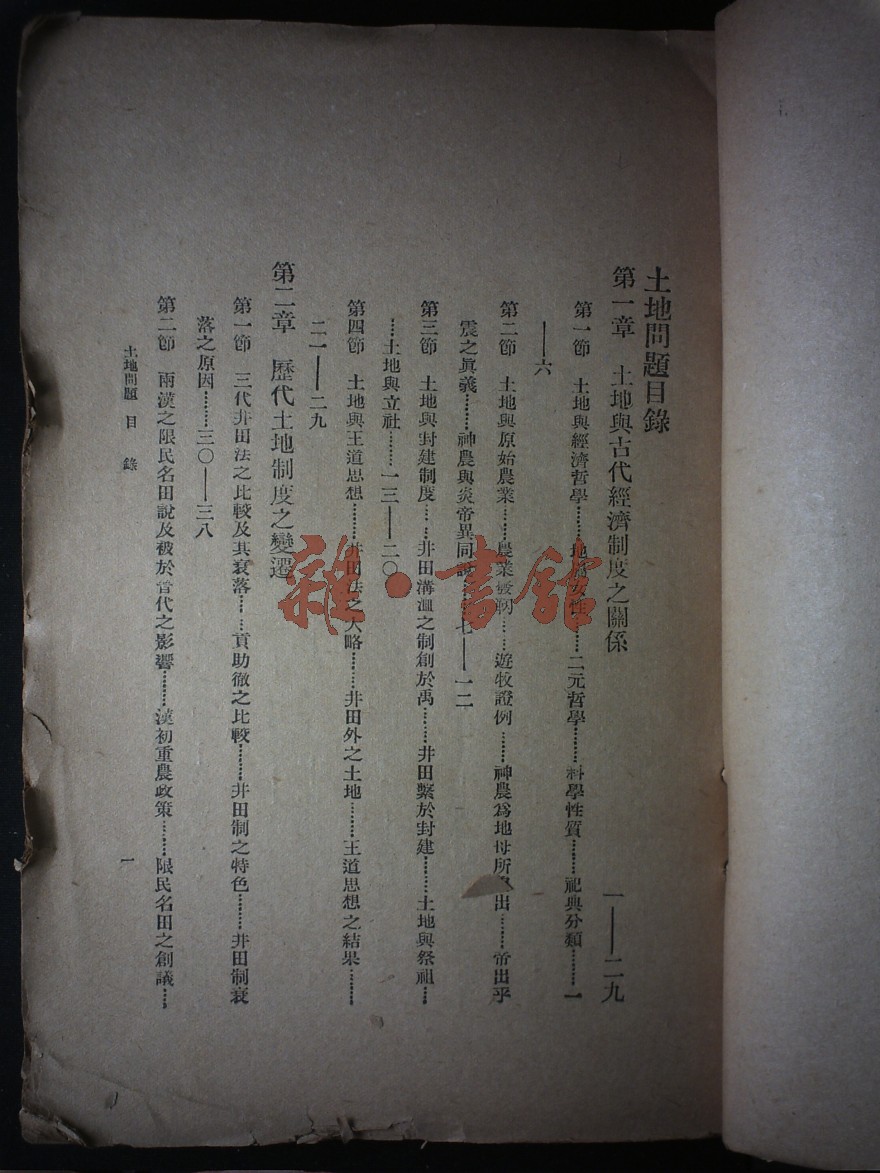 土地問題目錄
第一章　土地與古代經濟制度之關係　一——二九
第一節　土地與經濟哲學……地爲女性……二元哲學……科學性質……祀典分類……一
——六
第二節　土地與原始農業……農業發軔……遊牧證例……神農爲地母所出……帝出乎
震之眞義……神農與炎帝異同說……七——一二
第三節　土地與封建制度……井田溝洫之制創於禹……井田繫於封建……土地與祭祖…
……土地與立社……一三——二〇
第四節　土地與王道思想……井田法之大略……井田外之土地……王道思想之結果……
二一——二九
第二章　歷代土地制度之變遷
第一節　三代井田法之比較及其衰落……貢助徹之比較……井田制之特色……井田制衰
落之原因……三〇——三八
第二節　兩漢之限民名田說及被於當代之影響……漢初重農政策……限民名田之創議……
土地問題　目　錄
一
雜·書館